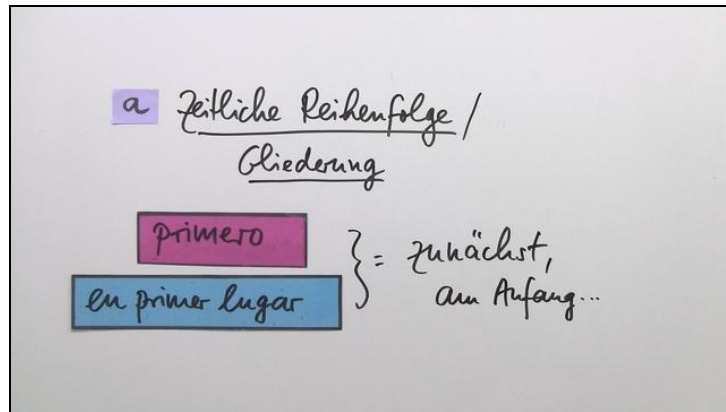 a Zeitliche Reihenfolge /
Gliederung
primero
en primer lugar
} = zunächst,
am Anfang...